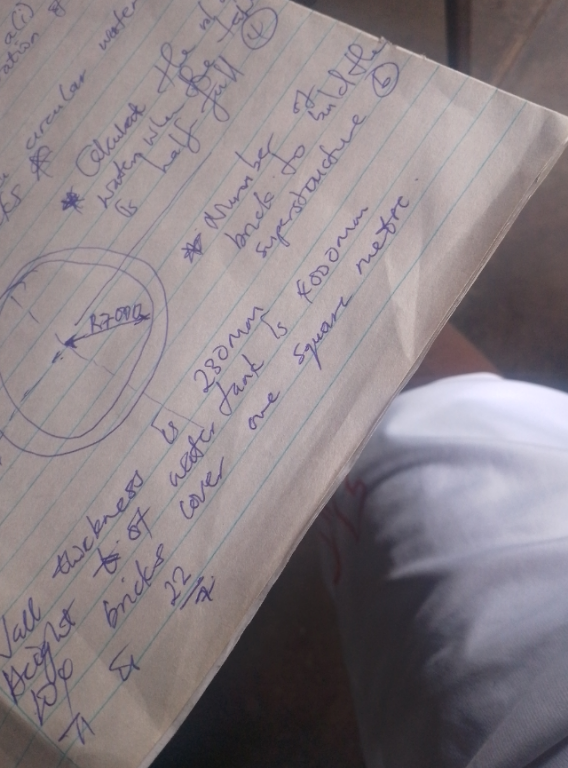 a(i)
circular water
* Calculated the
water when the
is half full (4)
* Number of
brick to build the
superstructure (6)
R7000
Wall thickness is 280mm
Height of water tank is 4000mm
bricks cover one square metre
22